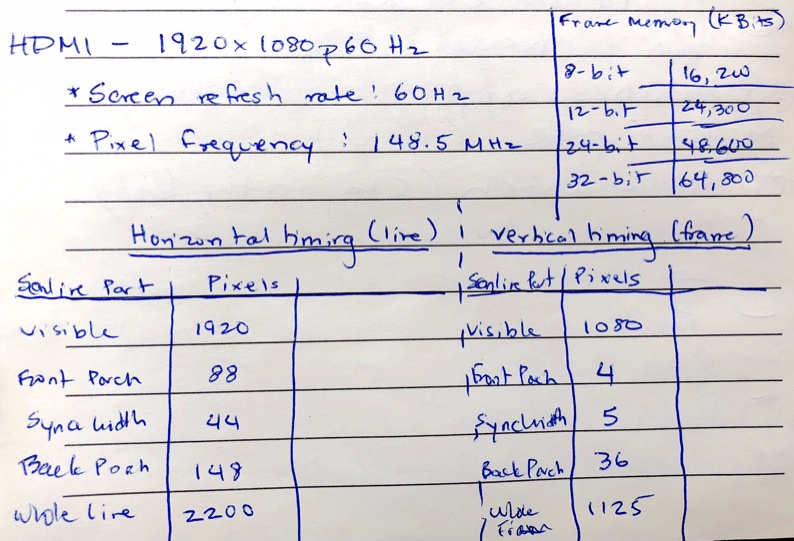 HDMI - 1920x1080p60Hz
* Screen refresh rate: 60Hz
* Pixel frequency : 148.5 MHz
Frame Memory (KBits)
8-bit 16,200
12-bit 24,300
24-bit 48,600
32-bit 64,800
Horizontal timing (line)
Scanline Part Pixels
Visible 1920
Front Porch 88
Sync width 44
Back Porch 148
Whole line 2200
Vertical timing (frame)
Scanline Part Pixels
Visible 1080
Front Porch 4
Sync width 5
Back Porch 36
Whole Frame 1125